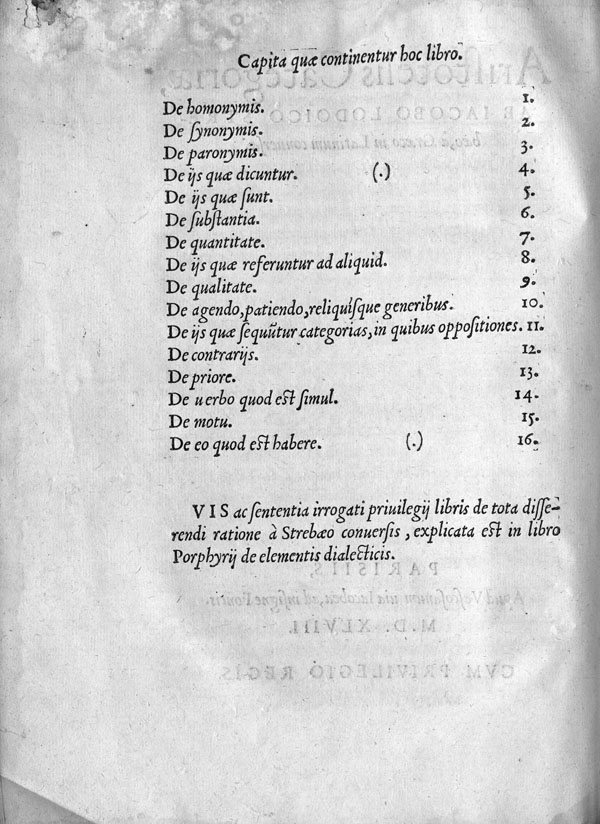 Capita quæ continentur hoc libro.
De homonymis. 1.
De synonymis. 2.
De paronymis. 3.
De ijs quæ dicuntur. (.) 4.
De ijs quæ sunt. 5.
De substantia. 6.
De quantitate. 7.
De ijs quæ referuntur ad aliquid. 8.
De qualitate. 9.
De agendo, patiendo, reliquisque generibus. 10.
De ijs quæ sequũtur categorias, in quibus oppositiones. 11.
De contrarijs. 12.
De priore. 13.
De uerbo quod est simul. 14.
De motu. 15.
De eo quod est habere. (.) 16.
VIS ac sententia irrogati priuilegij libris de tota disse-
rendi ratione à Strebæo conuersis, explicata est in libro
Porphyrij de elementis dialecticis.